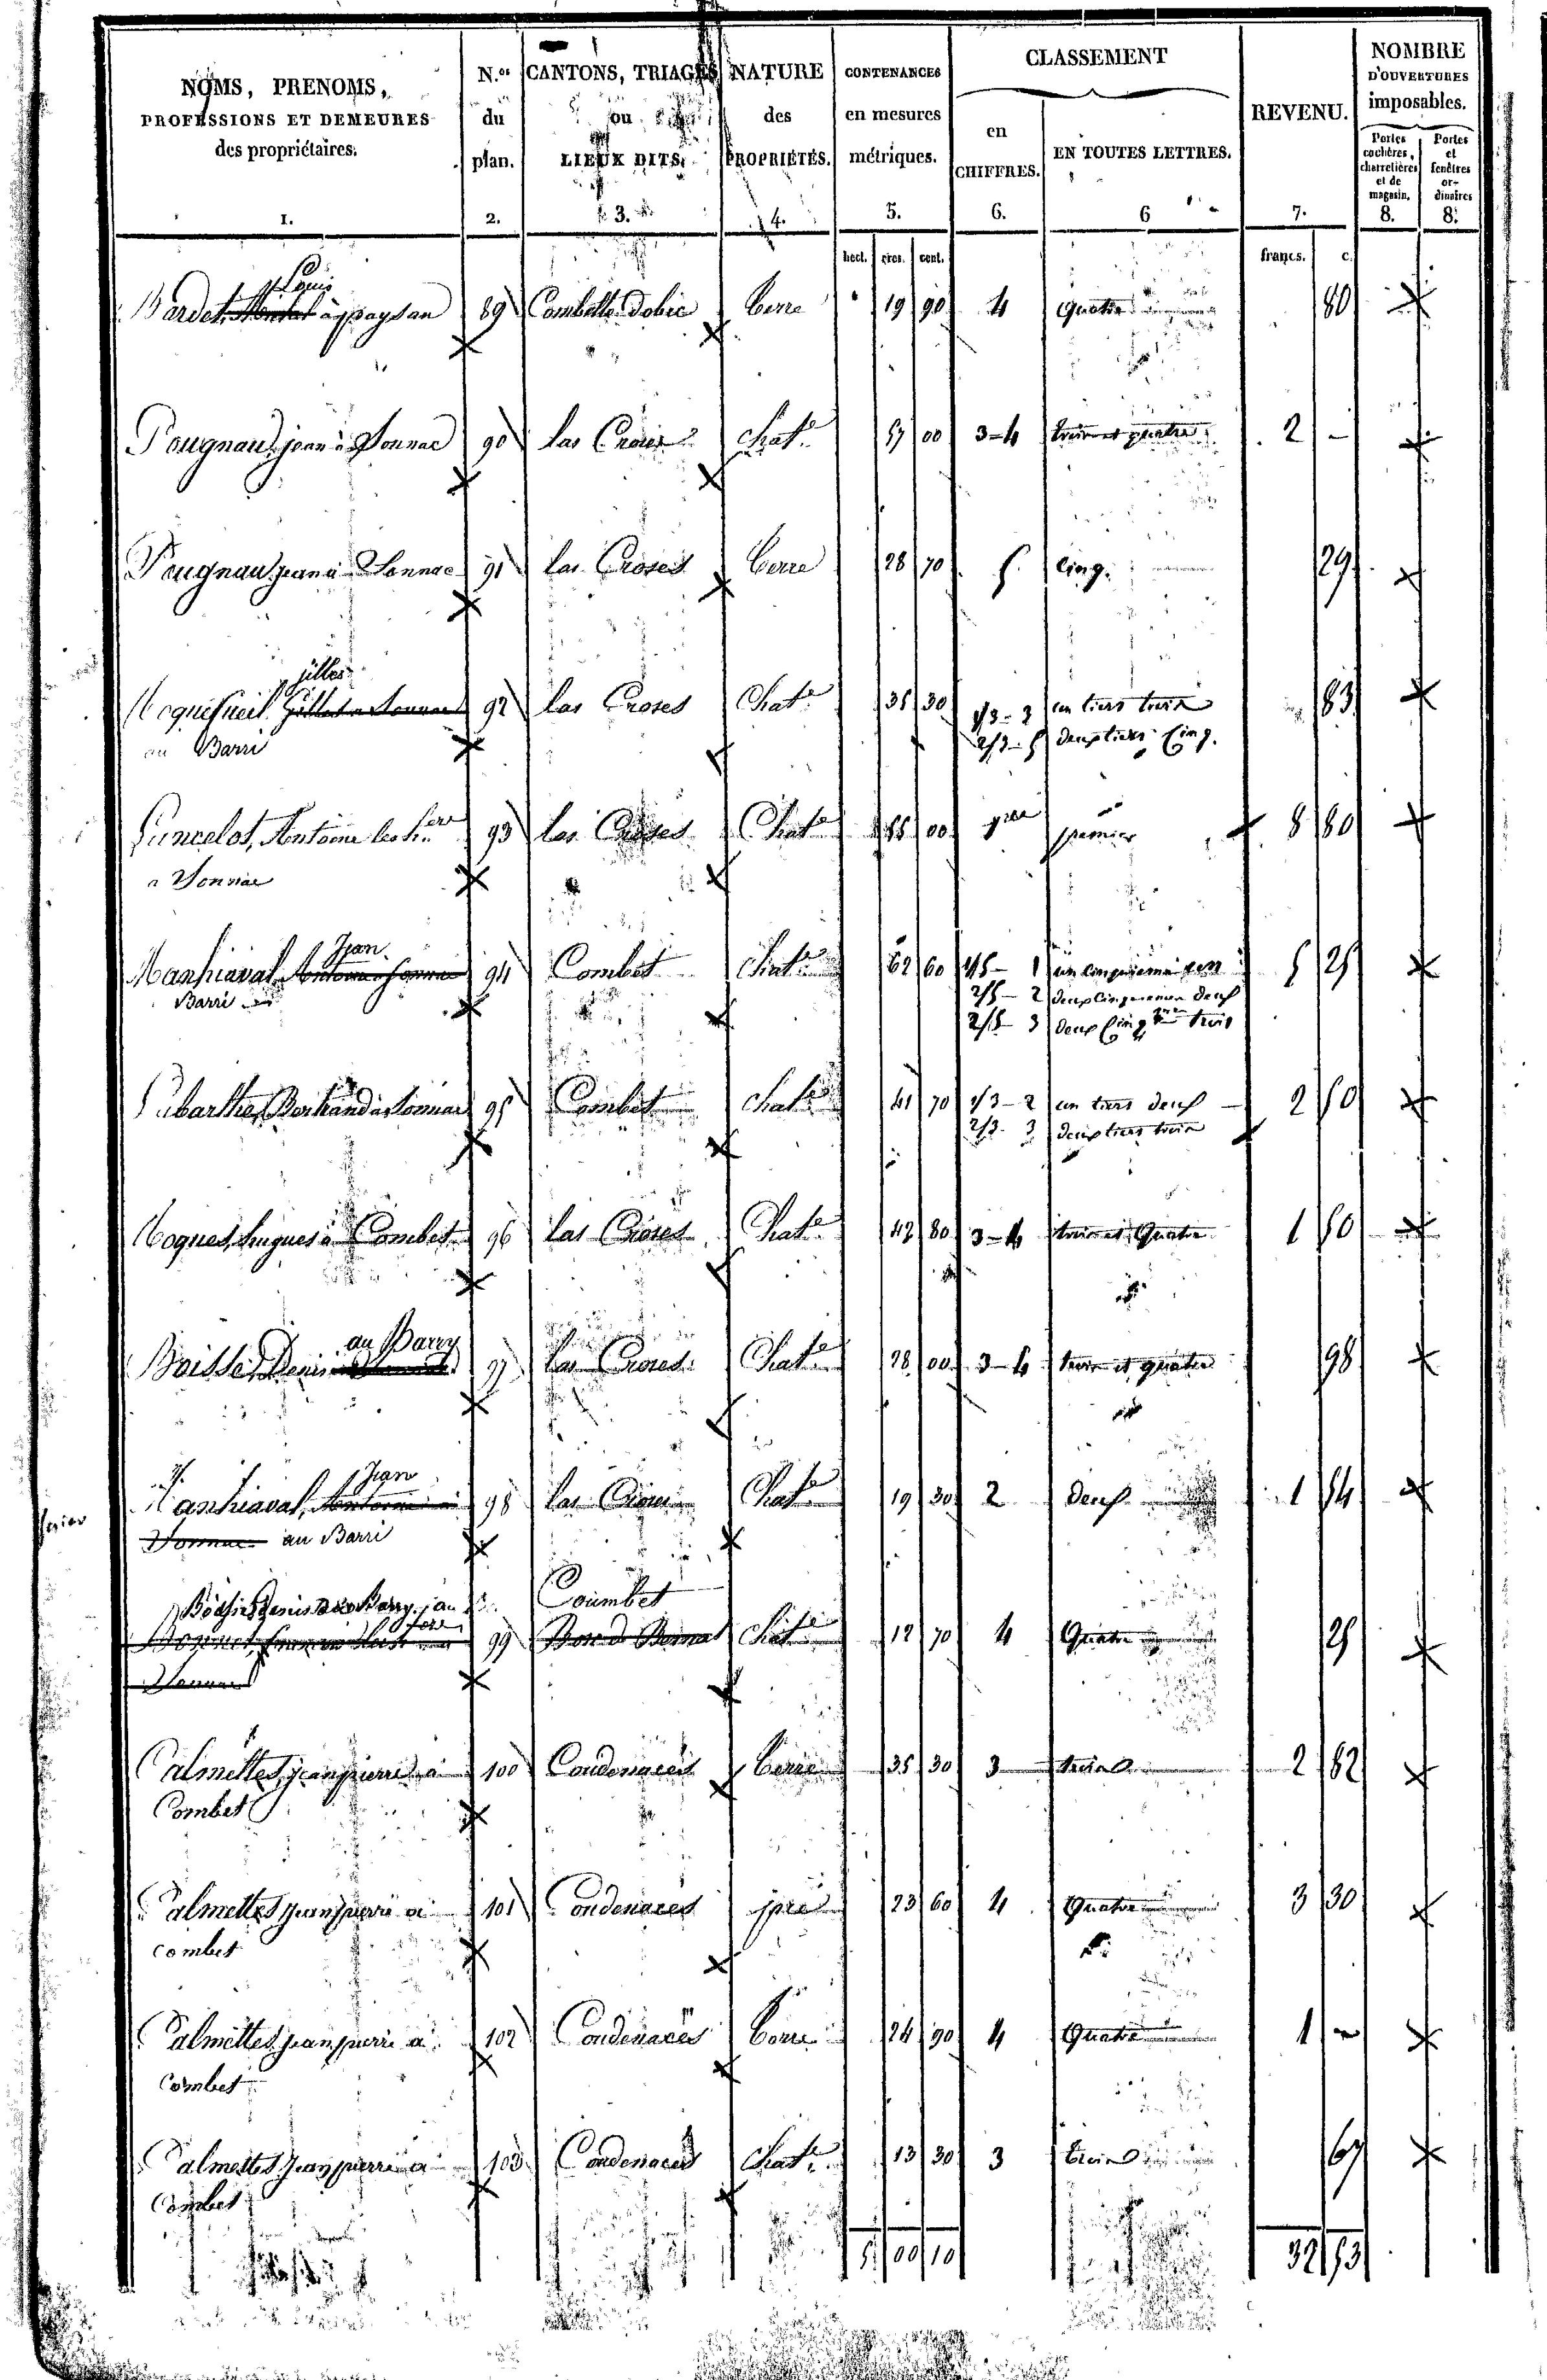 NOMS, PRENOMS, PROFESSIONS ET DEMEURES des propriétaires. 1.
N.os du plan. 2.
CANTONS, TRIAGES ou LIEUX DITS. 3.
NATURE des PROPRIÉTÉS. 4.
CONTENANCES en mesures métriques. 5.
CLASSEMENT
en CHIFFRES. 6.
EN TOUTES LETTRES. 6
REVENU. 7.
NOMBRE D'OUVERTURES imposables.
Portes cochères, charretières et de magasin. 8.
Portes et fenêtres ordinaires 8.
hect. ares. cent. francs. c.
Louis
Bardet, à paysan 89 Combette Dobie terre 19 90 4 Quatre 80
Pougnaud jean à Sonnac 90 las Croses chat.e 57 00 3-4 trois et quatre 2 -
Pougnaud jean à Sonnac 91 las Croses terre 28 70 5 Cinq. 29
jilles
92 las Croses Chat.e 35 30 1/3 - 3 un tiers trois 83
au Barri 2/3 - 5 deux tiers Cinq.
Antoine 93 las Croses Chat.e 88 00 1ere premier 8 80
a Sonnac
Jean
Manhiaval 94 Combet Chat.e 62 60 1/5 - 1 un Cinquieme un 5 25
Barri 2/5 - 2 deux Cinquiemes deux
2/5 - 3 deux Cinq.mes trois
Labarthe, Bertrand à Sonnac 95 Combet chat.e 41 70 1/3 - 2 un tiers deux 2 50
2/3 - 3 deux tiers trois
Roques, hugues à Combet 96 las Croses Chat.e 42 80 3-4 trois et Quatre 1 50
au Barry
Boisse, Denis 97 las Croses Chat.e 28 00 3-4 trois et quatre 98
Jean
Manhiaval, Antoine à 98 las Croses Chat.e 19 30 2 deux 1 54
Sonnac au Barri
Boisse Denis au Barry Coumbet
99 Chat.e 12 70 4 Quatre 25
Sonnac
Calmettes, jean pierre à 100 Condenaces terre 35 30 3 trois 2 82
Combet
Calmettes jean pierre à 101 Condenaces pré 23 60 4 Quatre 3 30
combet
Calmettes jean pierre à 102 Condenaces terre 24 90 4 Quatre 1 -
Combet
Calmettes jean pierre à 103 Condenaces Chat.e 13 30 3 trois 67
Combet
5 00 10 32 53